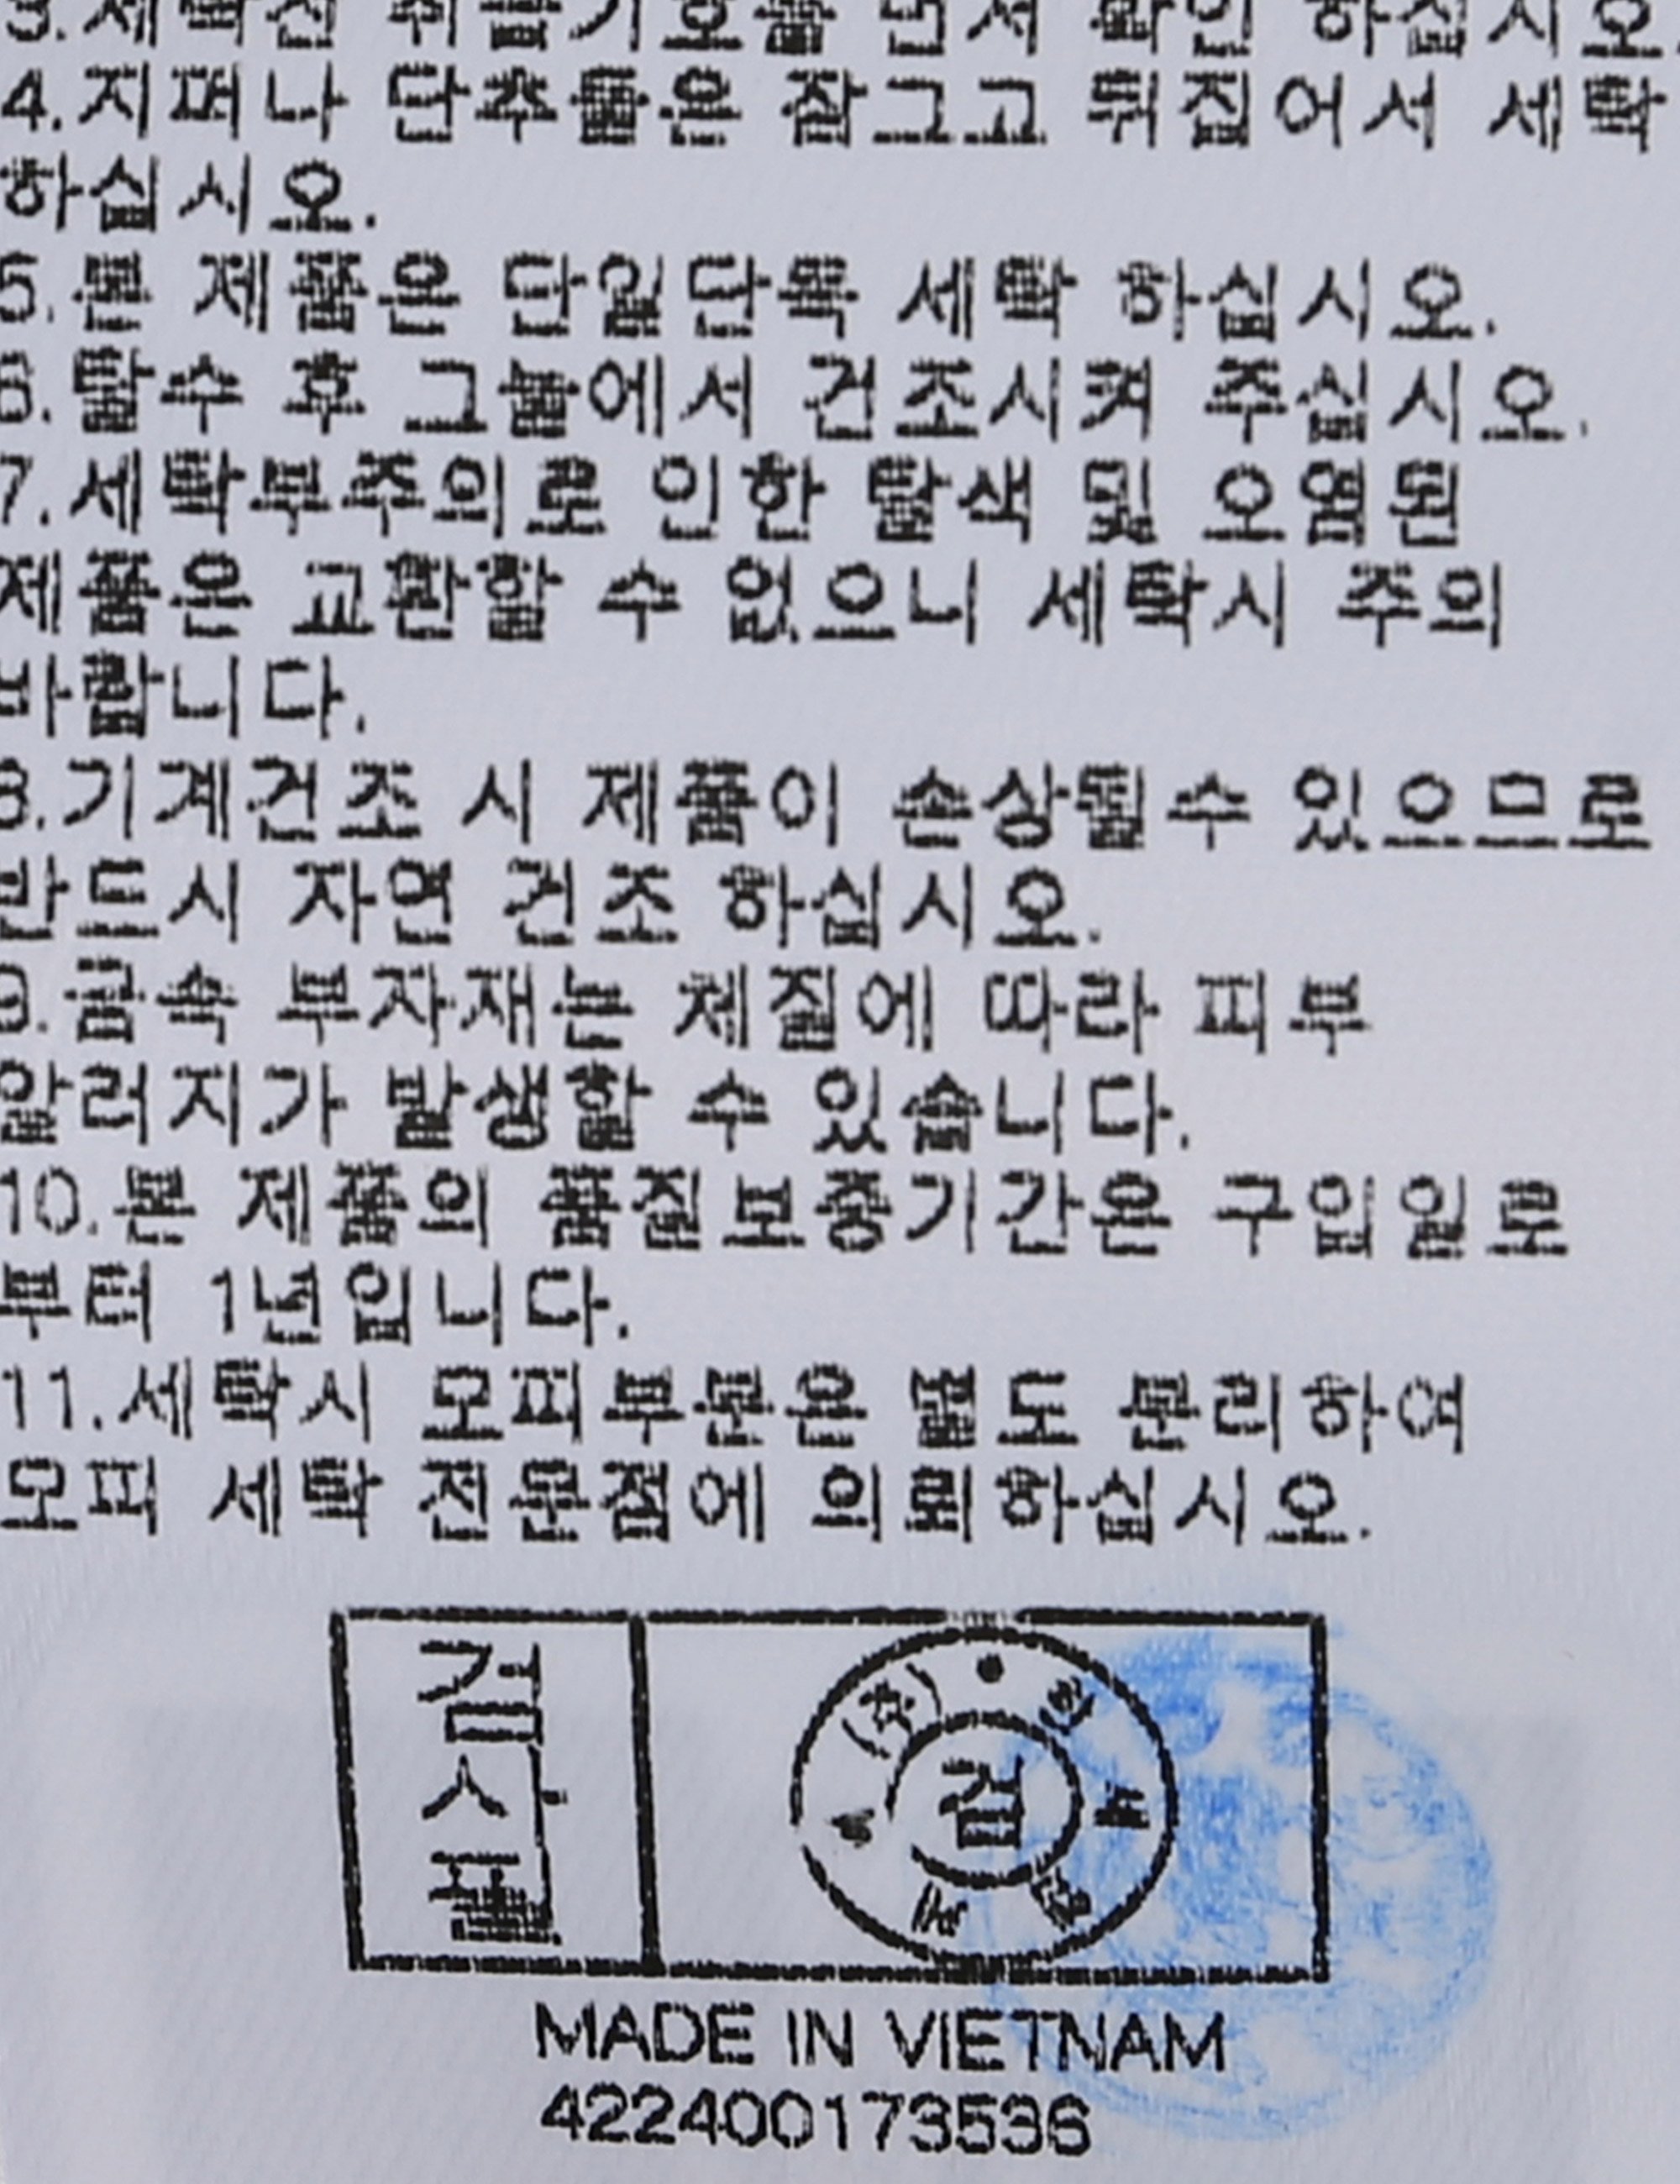 3.세탁전 취급기호를 먼저 확인 하십시오.
4.지퍼나 단추들은 잠그고 뒤집어서 세탁
하십시오.
5.본 제품은 단일단독 세탁 하십시오.
6.탈수 후 그늘에서 건조시켜 주십시오.
7.세탁부주의로 인한 탈색 및 오염된
제품은 교환할 수 없으니 세탁시 주의
바랍니다.
8.기계건조 시 제품이 손상될수 있으므로
반드시 자연 건조 하십시오.
9.금속 부자재는 체질에 따라 피부
알러지가 발생할 수 있습니다.
10.본 제품의 품질보증기간은 구입일로
부터 1년입니다.
11.세탁시 모피부분은 별도 분리하여
모피 세탁 전문점에 의뢰하십시오.
검사필
(주)
검
MADE IN VIETNAM
422400173536